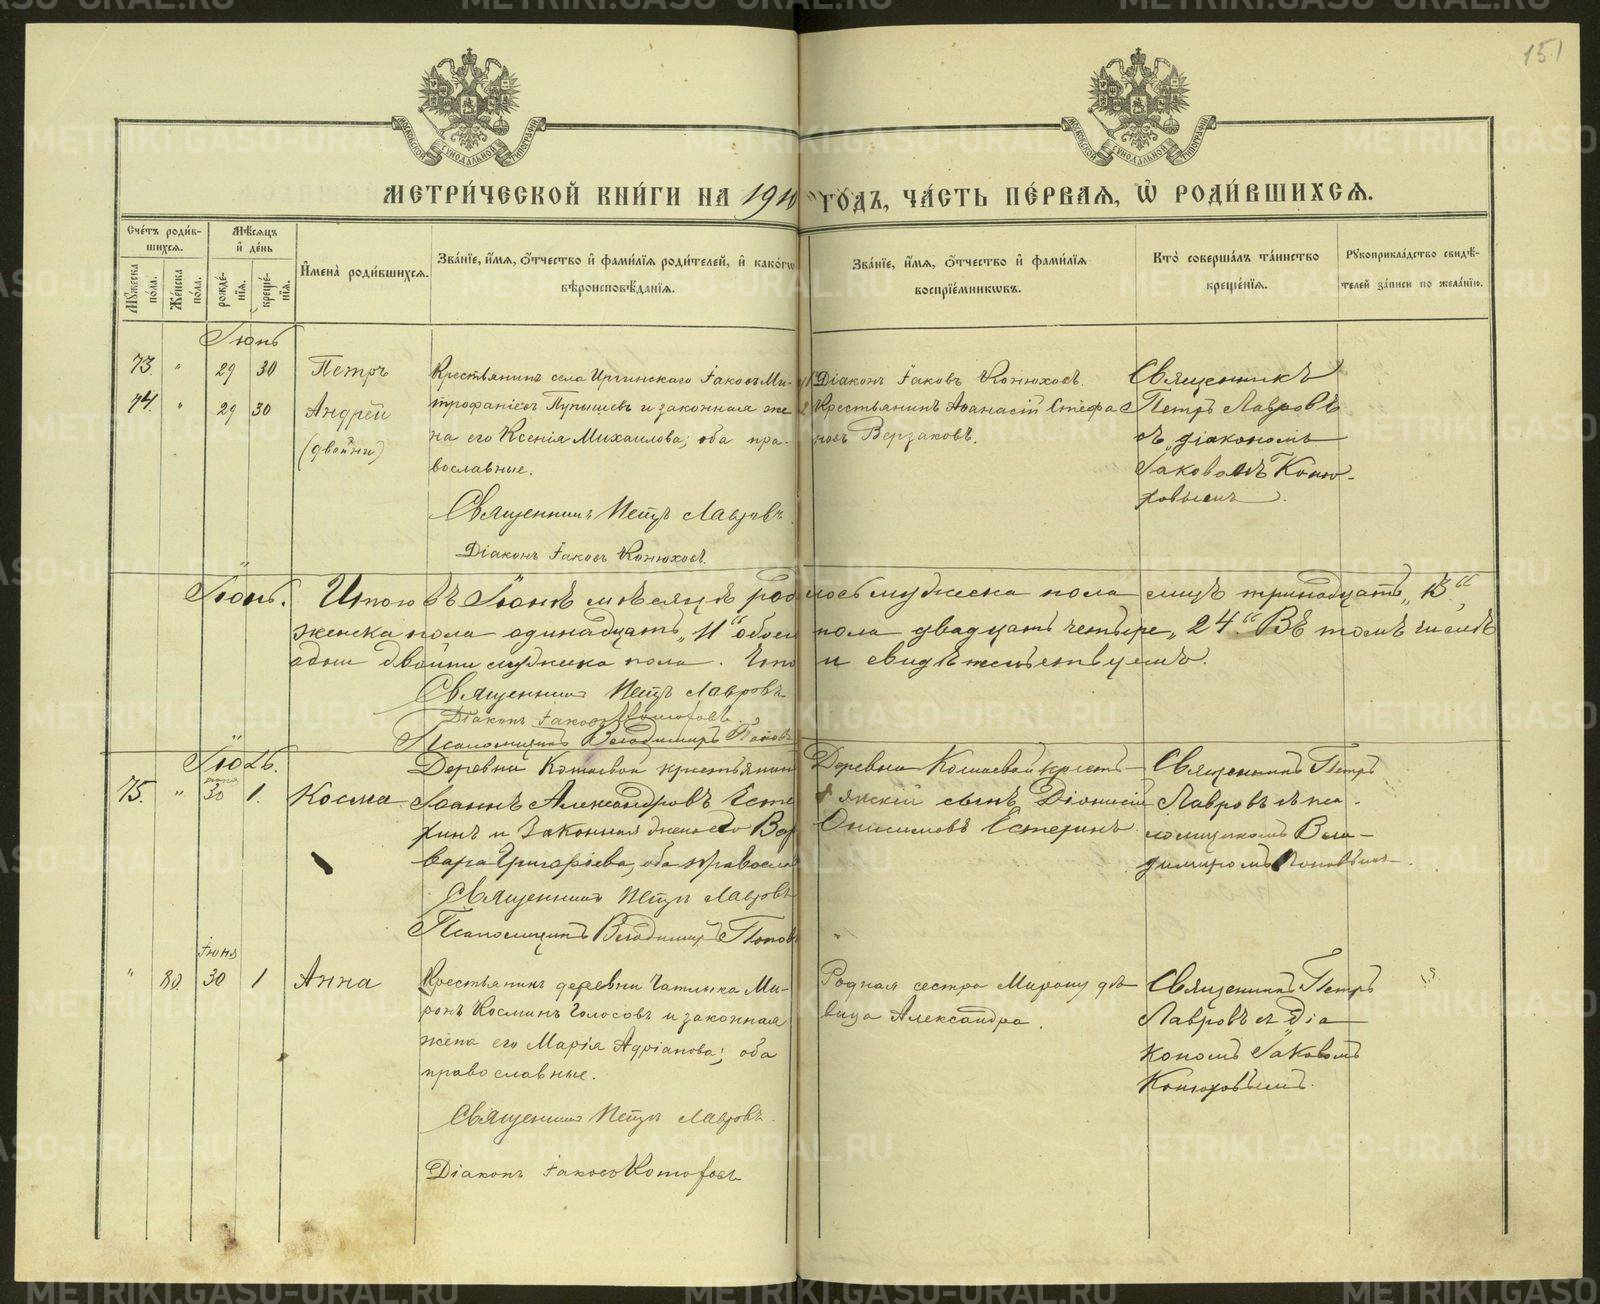 151
МОСКОВСКОЙ СѴНОДАЛЬНОЙ ТИПОГРАФІИ
МОСКОВСКОЙ СѴНОДАЛЬНОЙ ТИПОГРАФІИ
МЕТРИ́ЧЕСКОЙ КНИ́ГИ НА 1910 ГОДЪ, ЧА́СТЬ ПЕ́РВАЯ, Ѡ҆ РОДИ́ВШИХСЯ.
Сче́тъ роди́вшихся.
Мꙋ́жеска по́ла.
Же́нска по́ла.
Мѣ́сяцъ и҆ де́нь
рожде́нїя.
креще́нїя.
И҆мена̀ роди́вшихся.
Зва́нїе, и҆́мя, ѻ҆́тчество и҆ фами́лїя роди́телей, и҆ како́гѡ
вѣроисповѣ́данїя.
Зва́нїе, и҆́мя, ѻ҆́тчество и҆ фами́лїя
воспрїе́мникѡвъ.
Кто̀ соверша́лъ та́инство
креще́нїя.
Рꙋкоприкла́дство свидѣ́телей за́писи по жела́нїю.
Іюнь
73. " 29 30 Петръ
74. " 29 30 Андрей
(двойни)
Крестьянинъ села Иргинскаго Іаковъ Ми-
трофаніевъ Пупышевъ и законная же
на его Ксенія Михаилова; оба пра-
вославные.
Священникъ Петръ Лавровъ
Діаконъ Іаковъ Конюховъ.
1 Діаконъ Іаковъ Конюховъ.
2 Крестьянинъ Аѳанасій Стефа
новъ Верзаковъ.
Священникъ
Петръ Лавровъ
съ діакономъ
Іаковомъ Коню-
ховымъ.
Іюнь. Итого въ Іюнѣ мѣсяцѣ родилось мужеска пола лицъ тринадцать „13“
женска пола одинадцать „11“ обоего пола двадцать четыре „24“. Въ томъ числѣ
одни двойни мужеска пола. Что и свидѣтельствуемъ.
Священникъ Петръ Лавровъ
Діаконъ Іаковъ Конюховъ.
Псаломщикъ Владимиръ Поповъ
Іюль.
75. " іюня 30 1. Косма
Деревни Кошаевой крестьянинъ
Іоаннъ Александровъ Есте
ринъ и законная жена его Вар
вара Григоріева, оба правосла
Священникъ Петръ Лавровъ
Псаломщикъ Владимиръ Поповъ
Деревни Кошаевой кресть-
янскій сынъ Діонисій
Онисимовъ Естеринъ
Священникъ Петръ
Лавровъ съ пса-
ломщикомъ Вла-
димиромъ Поповымъ.
" 80. Іюня 30 1 Анна
Крестьянинъ деревни Чатлыка Ми-
ронъ Косминъ Голосовъ и законная
жена его Марія Адріанова; оба
православные.
Священникъ Петръ Лавровъ.
Діаконъ Іаковъ Конюховъ
Родная сестра Мирону дѣ-
вица Александра.
Священникъ Петръ
Лавровъ съ діа
кономъ Іаковомъ
Конюховымъ.
METRIKI.GASO-URAL.RU